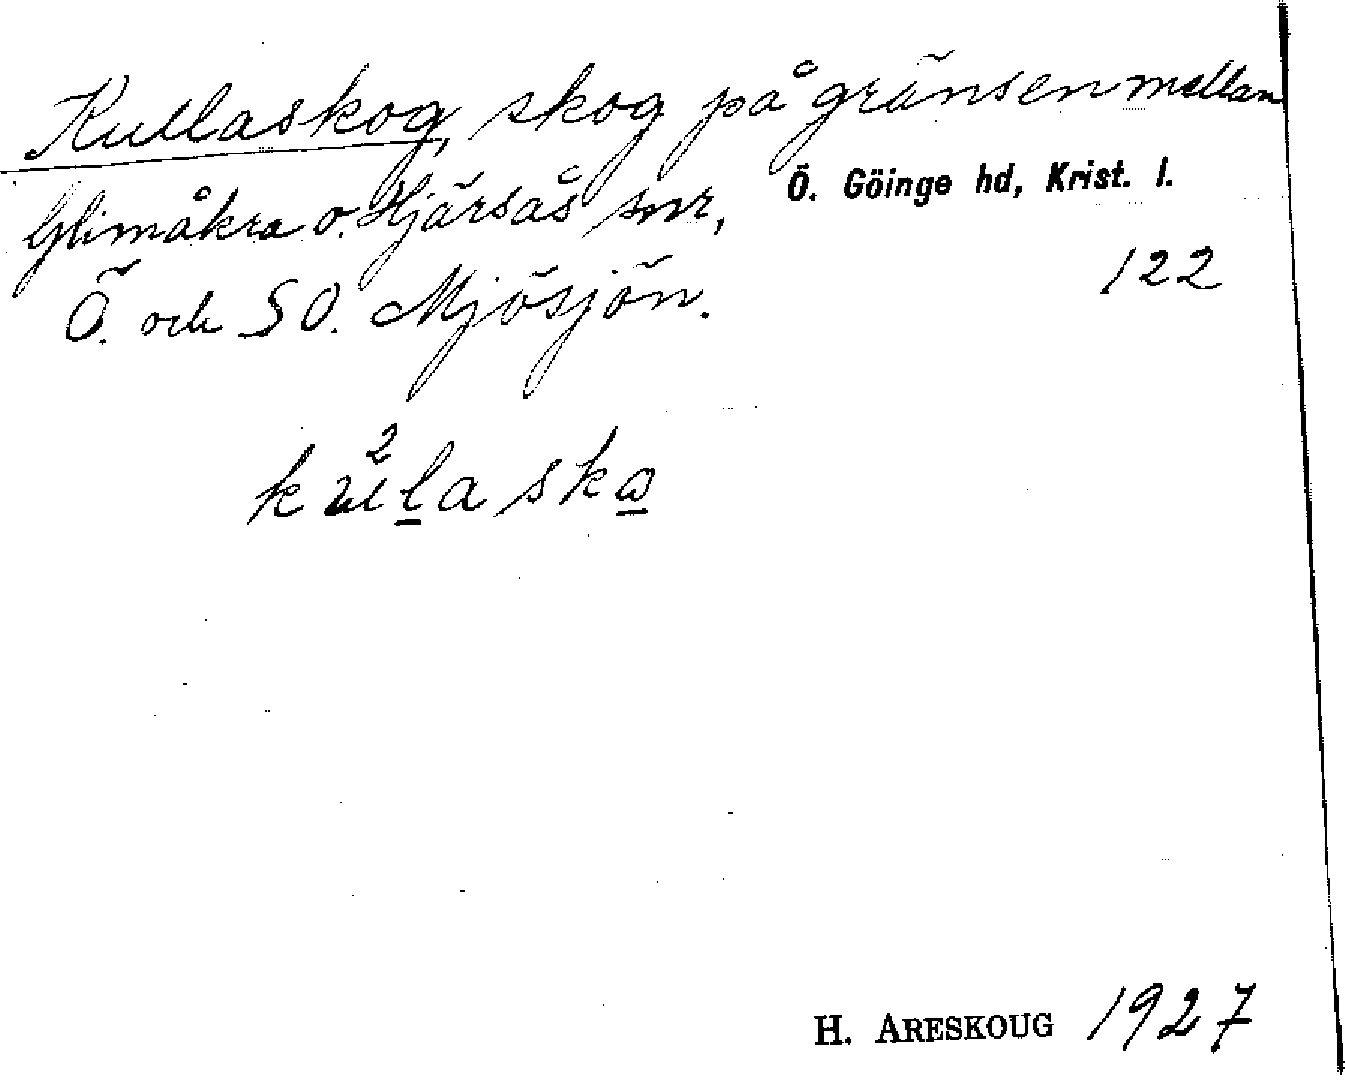 Kullaskog, skog på gränsen mellan
Glimåkra o. Hjärsås snr, Ö. Göinge hd, Krist. l.
Ö. och SO. Mjösjön. 122
ku²laskɷ
H. ARESKOUG 1927